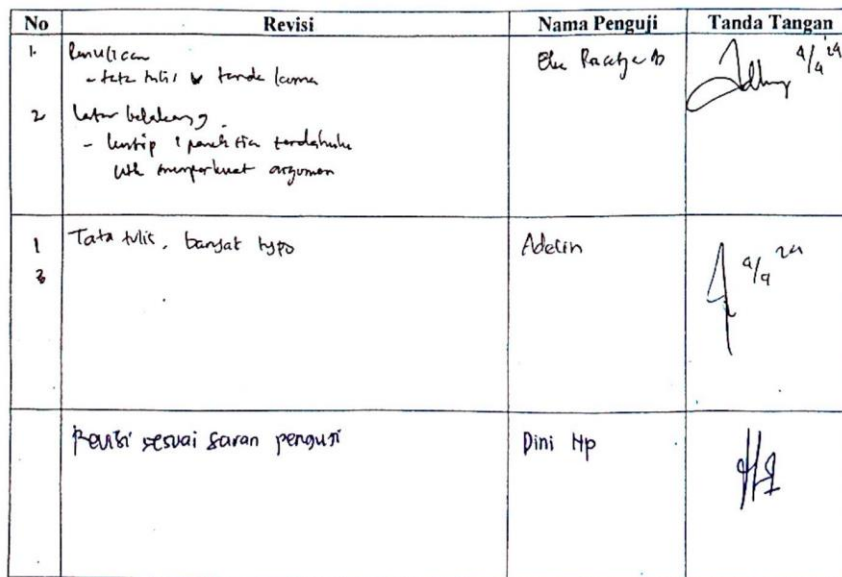 No Revisi Nama Penguji Tanda Tangan
1. Penulisan
- tata tulis tanda koma
Eka 4/4 '24
2 Latar belakang
- kutip penelitian terdahulu
utk memperkuat argumen
1 Tata tulis, banyak typo Adelin 4/4 24
3
Revisi sesuai saran penguji Dini Np